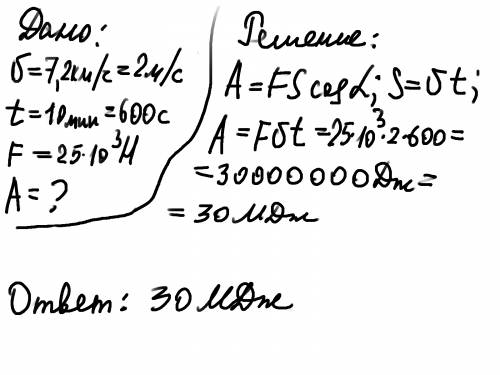 Дано:
υ=7,2км/с=2м/с
t=10мин=600с
F=25·10³Н
A=?
Решение:
A=FS cosα; S=υt;
A=Fυt=25·10³·2·600=
=30000000Дж=
=30МДж
Ответ: 30МДж